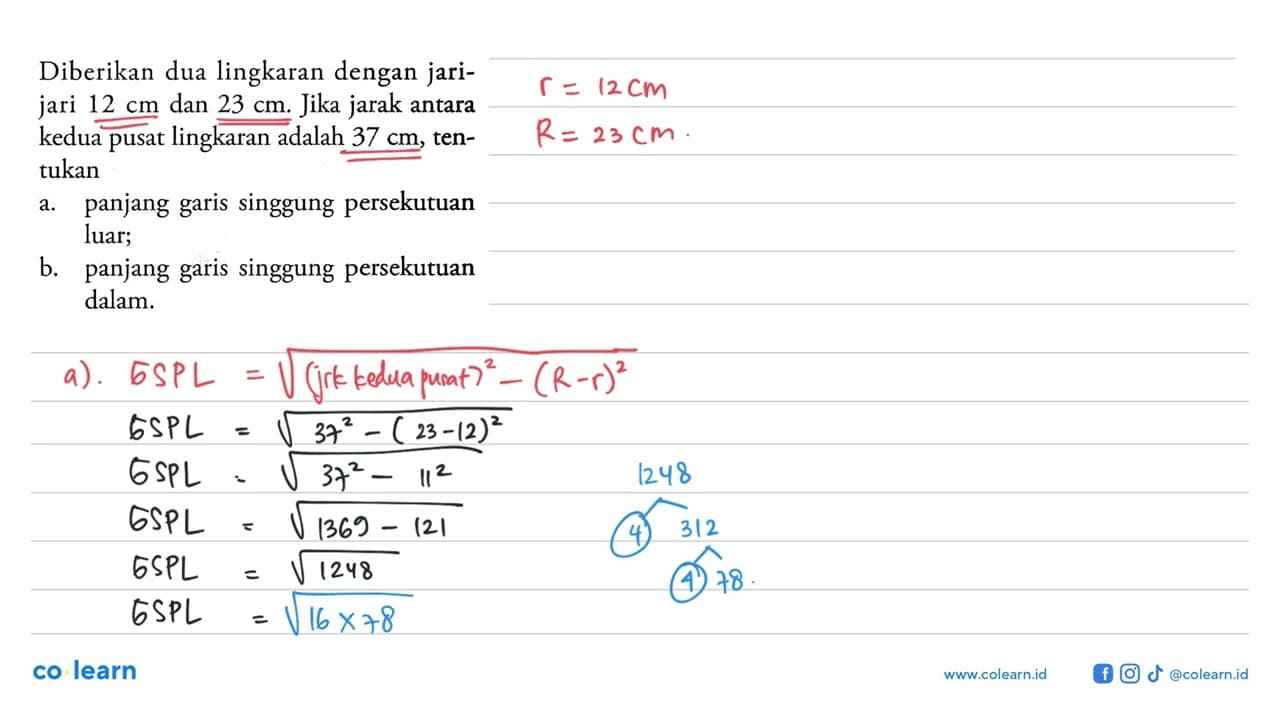 Diberikan dua lingkaran dengan jari-
jari 12 cm dan 23 cm. Jika jarak antara
kedua pusat lingkaran adalah 37 cm, ten-
tukan
a. panjang garis singgung persekutuan
luar;
b. panjang garis singgung persekutuan
dalam.
r = 12 cm
R = 23 cm.
a). GSPL = √(jrk kedua pusat)² - (R-r)²
GSPL = √37² - (23-12)²
GSPL = √37² - 11²
GSPL = √1369 - 121
GSPL = √1248
GSPL = √16 x 78
1248
4 312
4 78.
co learn
www.colearn.id
@colearn.id